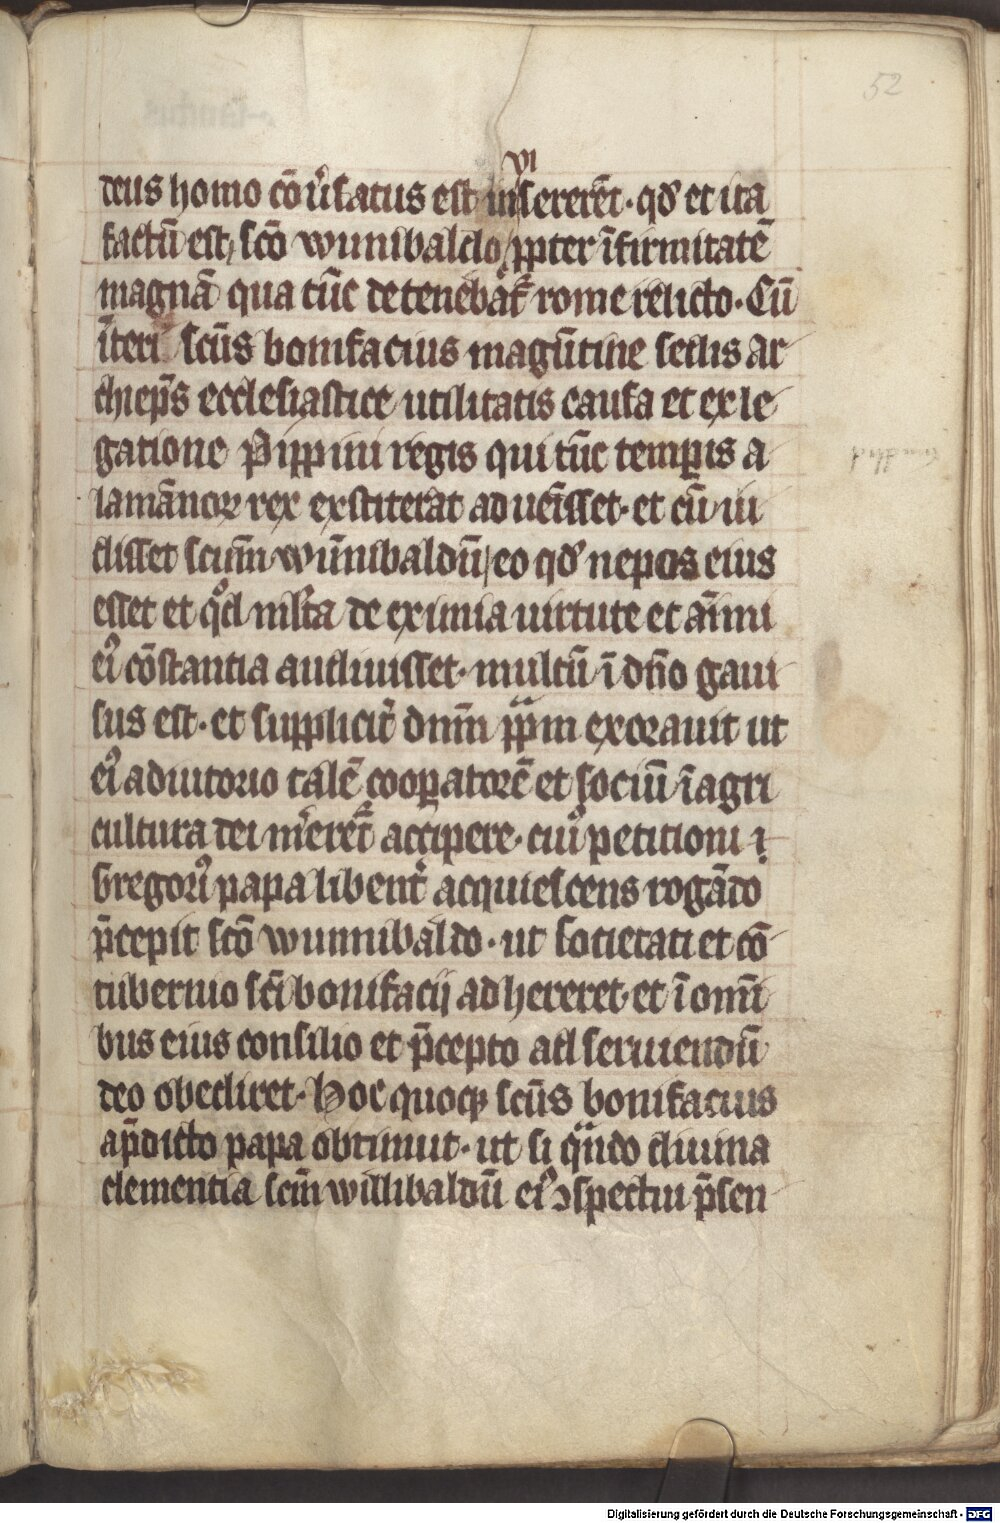 52
vi
deus homo cōu̓satus est inserer̄et · qd̓ et ita
factū est, sc̄o wunibaldo ꝓpter īfirmitatē
magnā qua tūc detenebat̓ rome relicto · Cū
īteri sc̄us bonifacius magūtine sedis ar
chiep̄s ecclesiastice utilitatis causa et ex le
gatione Pippini regis qui tūc temꝑis a
lamānoꝝ rex exstiterat aduēisset · et cū iu
disset scūm wūnibaldū, eo qd̓ nepos eius
esset et qd̓ ml̓ta de eximia uirtute et aīmi
ei᷒ cōstantia audiuisset · multū ī dn̄o gaui
sus est · et supplicit̓ dnm̄ ppm exorauit ut
ei᷒ adiutorio talē cooꝑatorē et sociū ī agri
cultura dei m̓eret̓ accipere · cui᷒ petitioni ·i·
Gregori᷒ papa libent̓ acquiescens rogādo
p̄cepit sc̄o wunnibaldo · ut societati et cō
tubernio sc̄i bonifacij adhereret · et ī omī
bus eius consilio et p̄cepto ad seruiendū
deo obediret · Hoc quoqꝫ sc̄us bonifacius
a p̄dicto papa obtinuit · ut si qn̄do diuina
clementia scm̄ willibaldū ei᷒ ↄspectui p̄sen
Digitalisierung gefördert durch die Deutsche Forschungsgemeinschaft - DFG